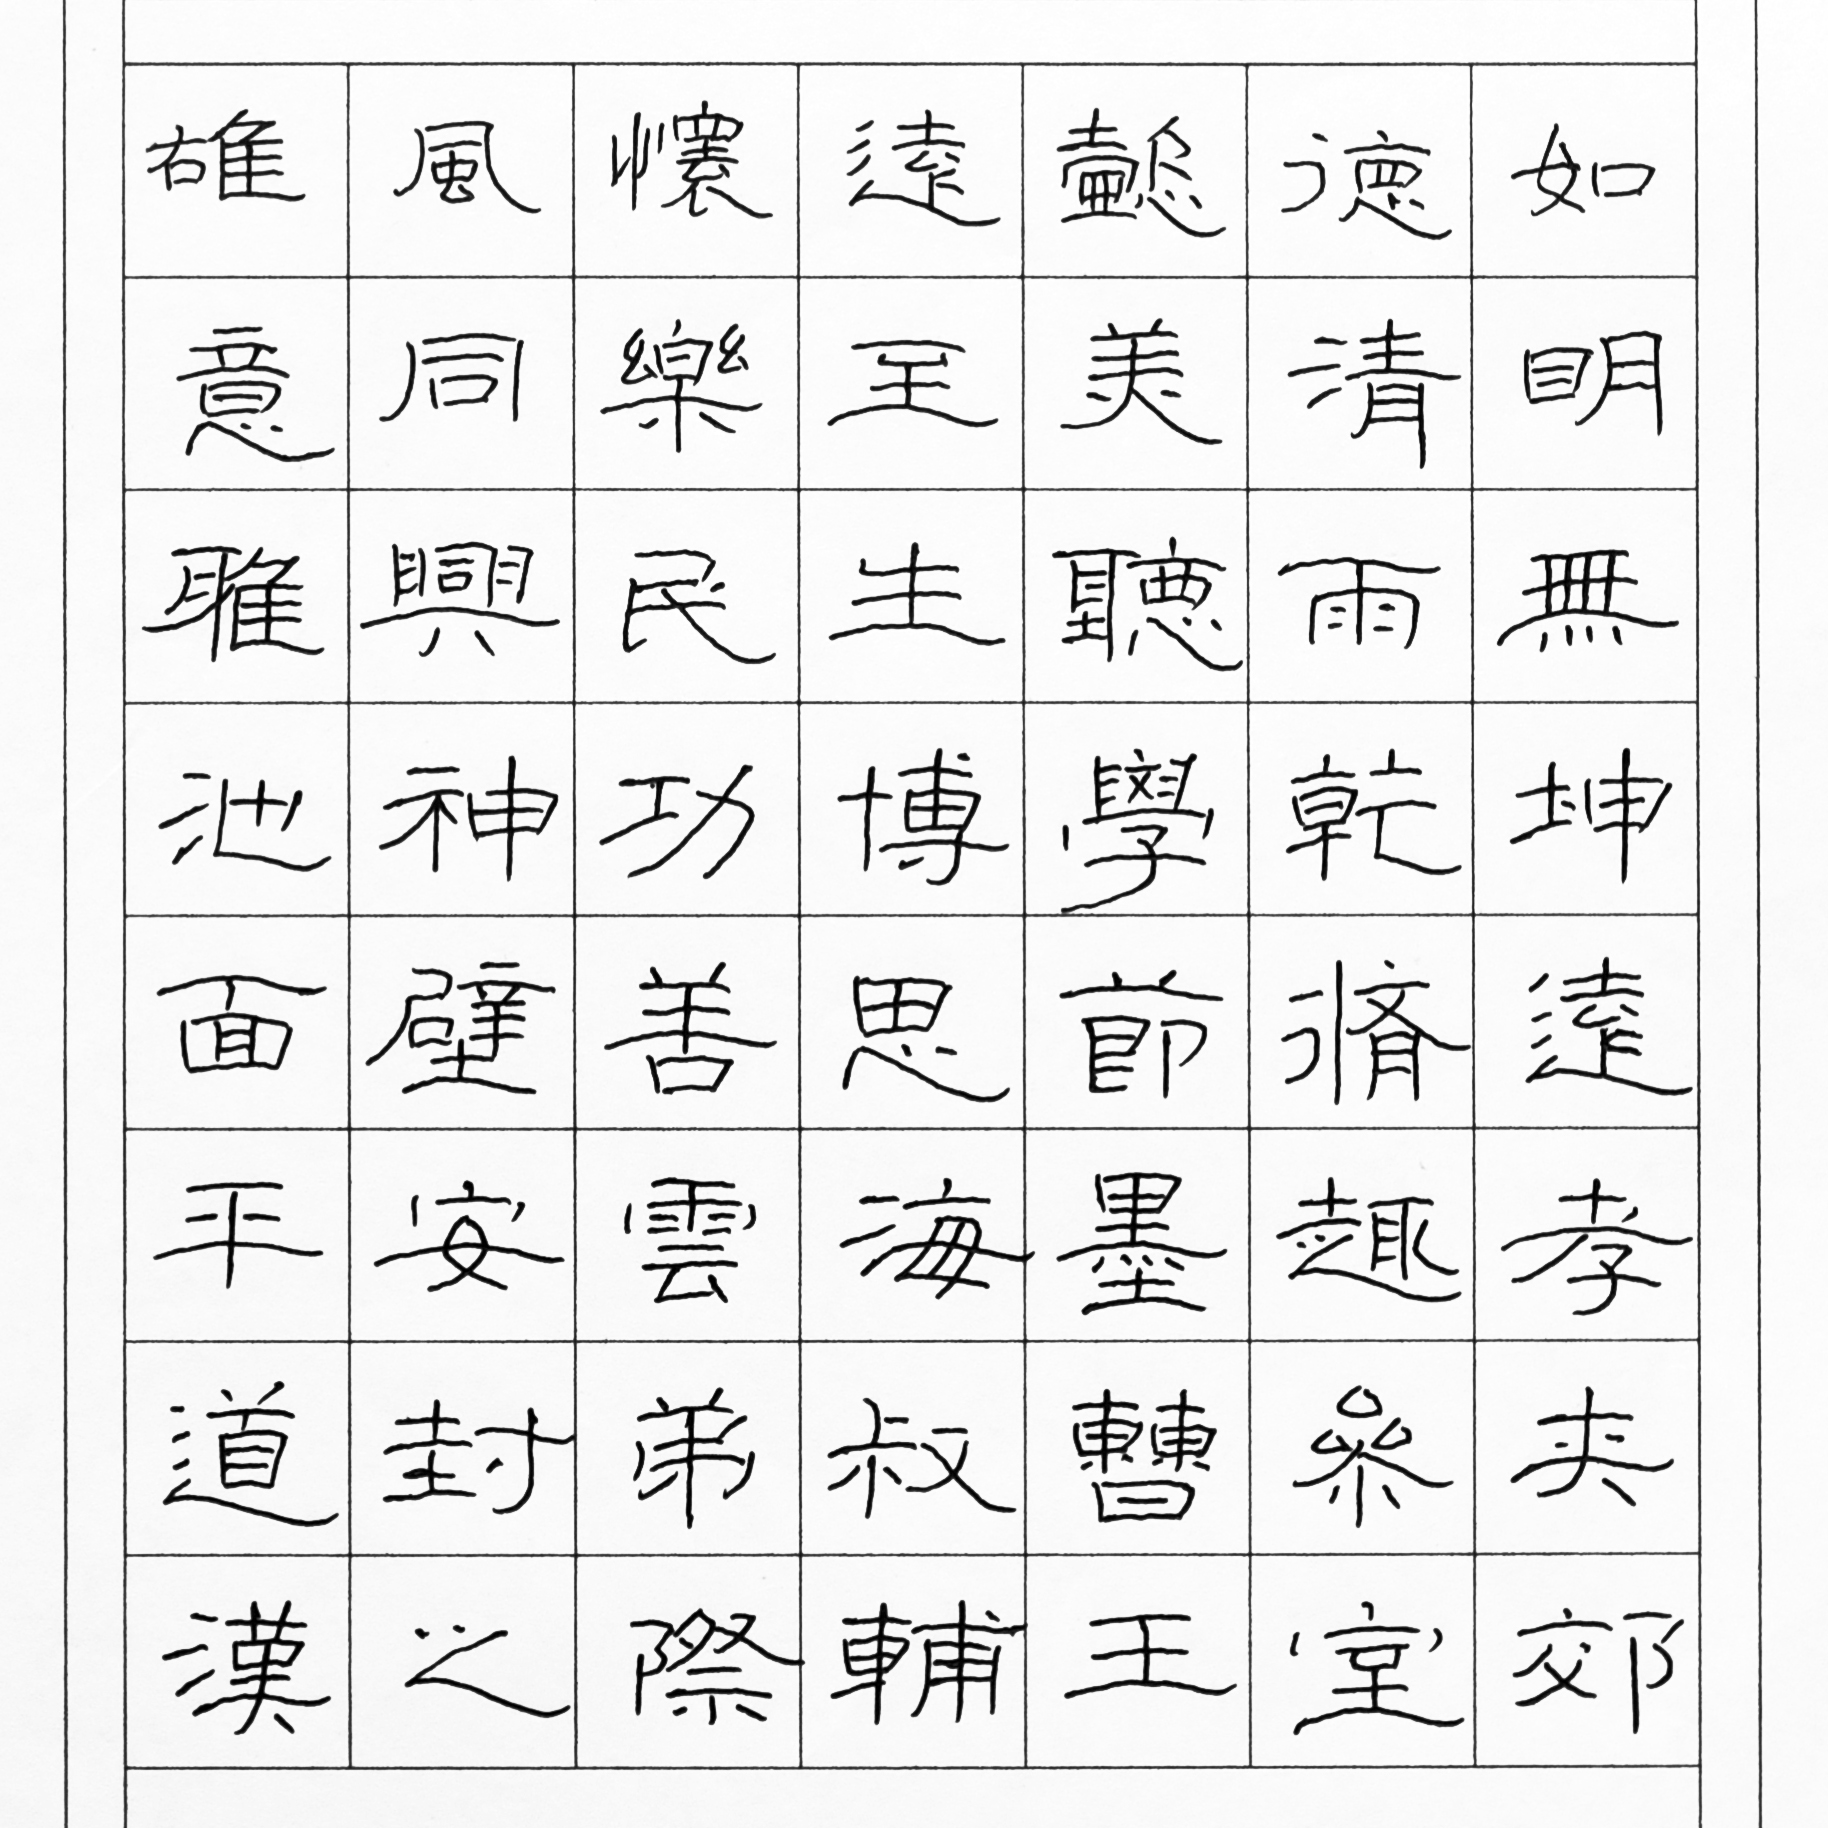 雄風懷遠懿德如
意同樂至美清明
雅興民生聽雨無
池神功博學乾坤
面壁善思節脩遠
平安雲海墨趣孝
道封弟叔曹參夾
漢之際輔王堂郊